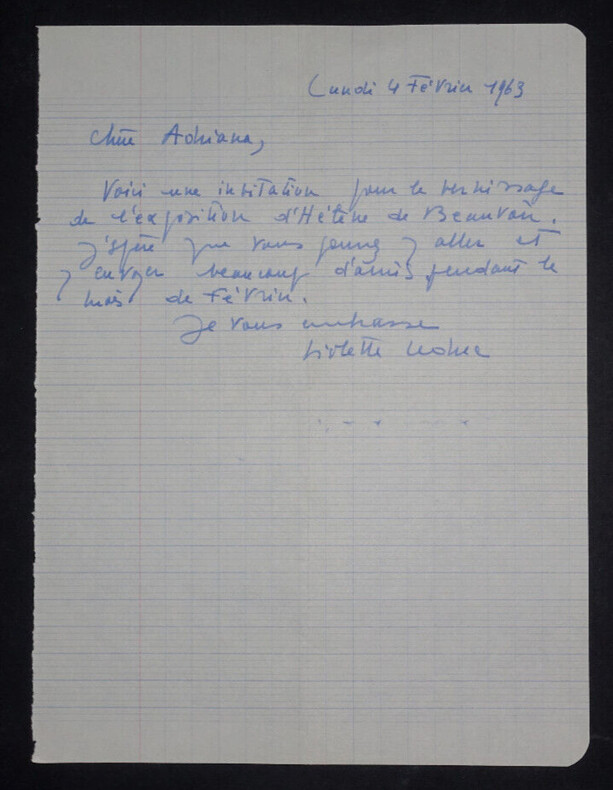 Lundi 4 Février 1963
Chère Adriana,
Voici une invitation pour le vernissage
de l'exposition d'Hélène de Beauvoir.
J'espère que vous pourrez y aller et
y envoyer beaucoup d'amis pendant le
mois de Février.
Je vous embrasse
Violette Leduc